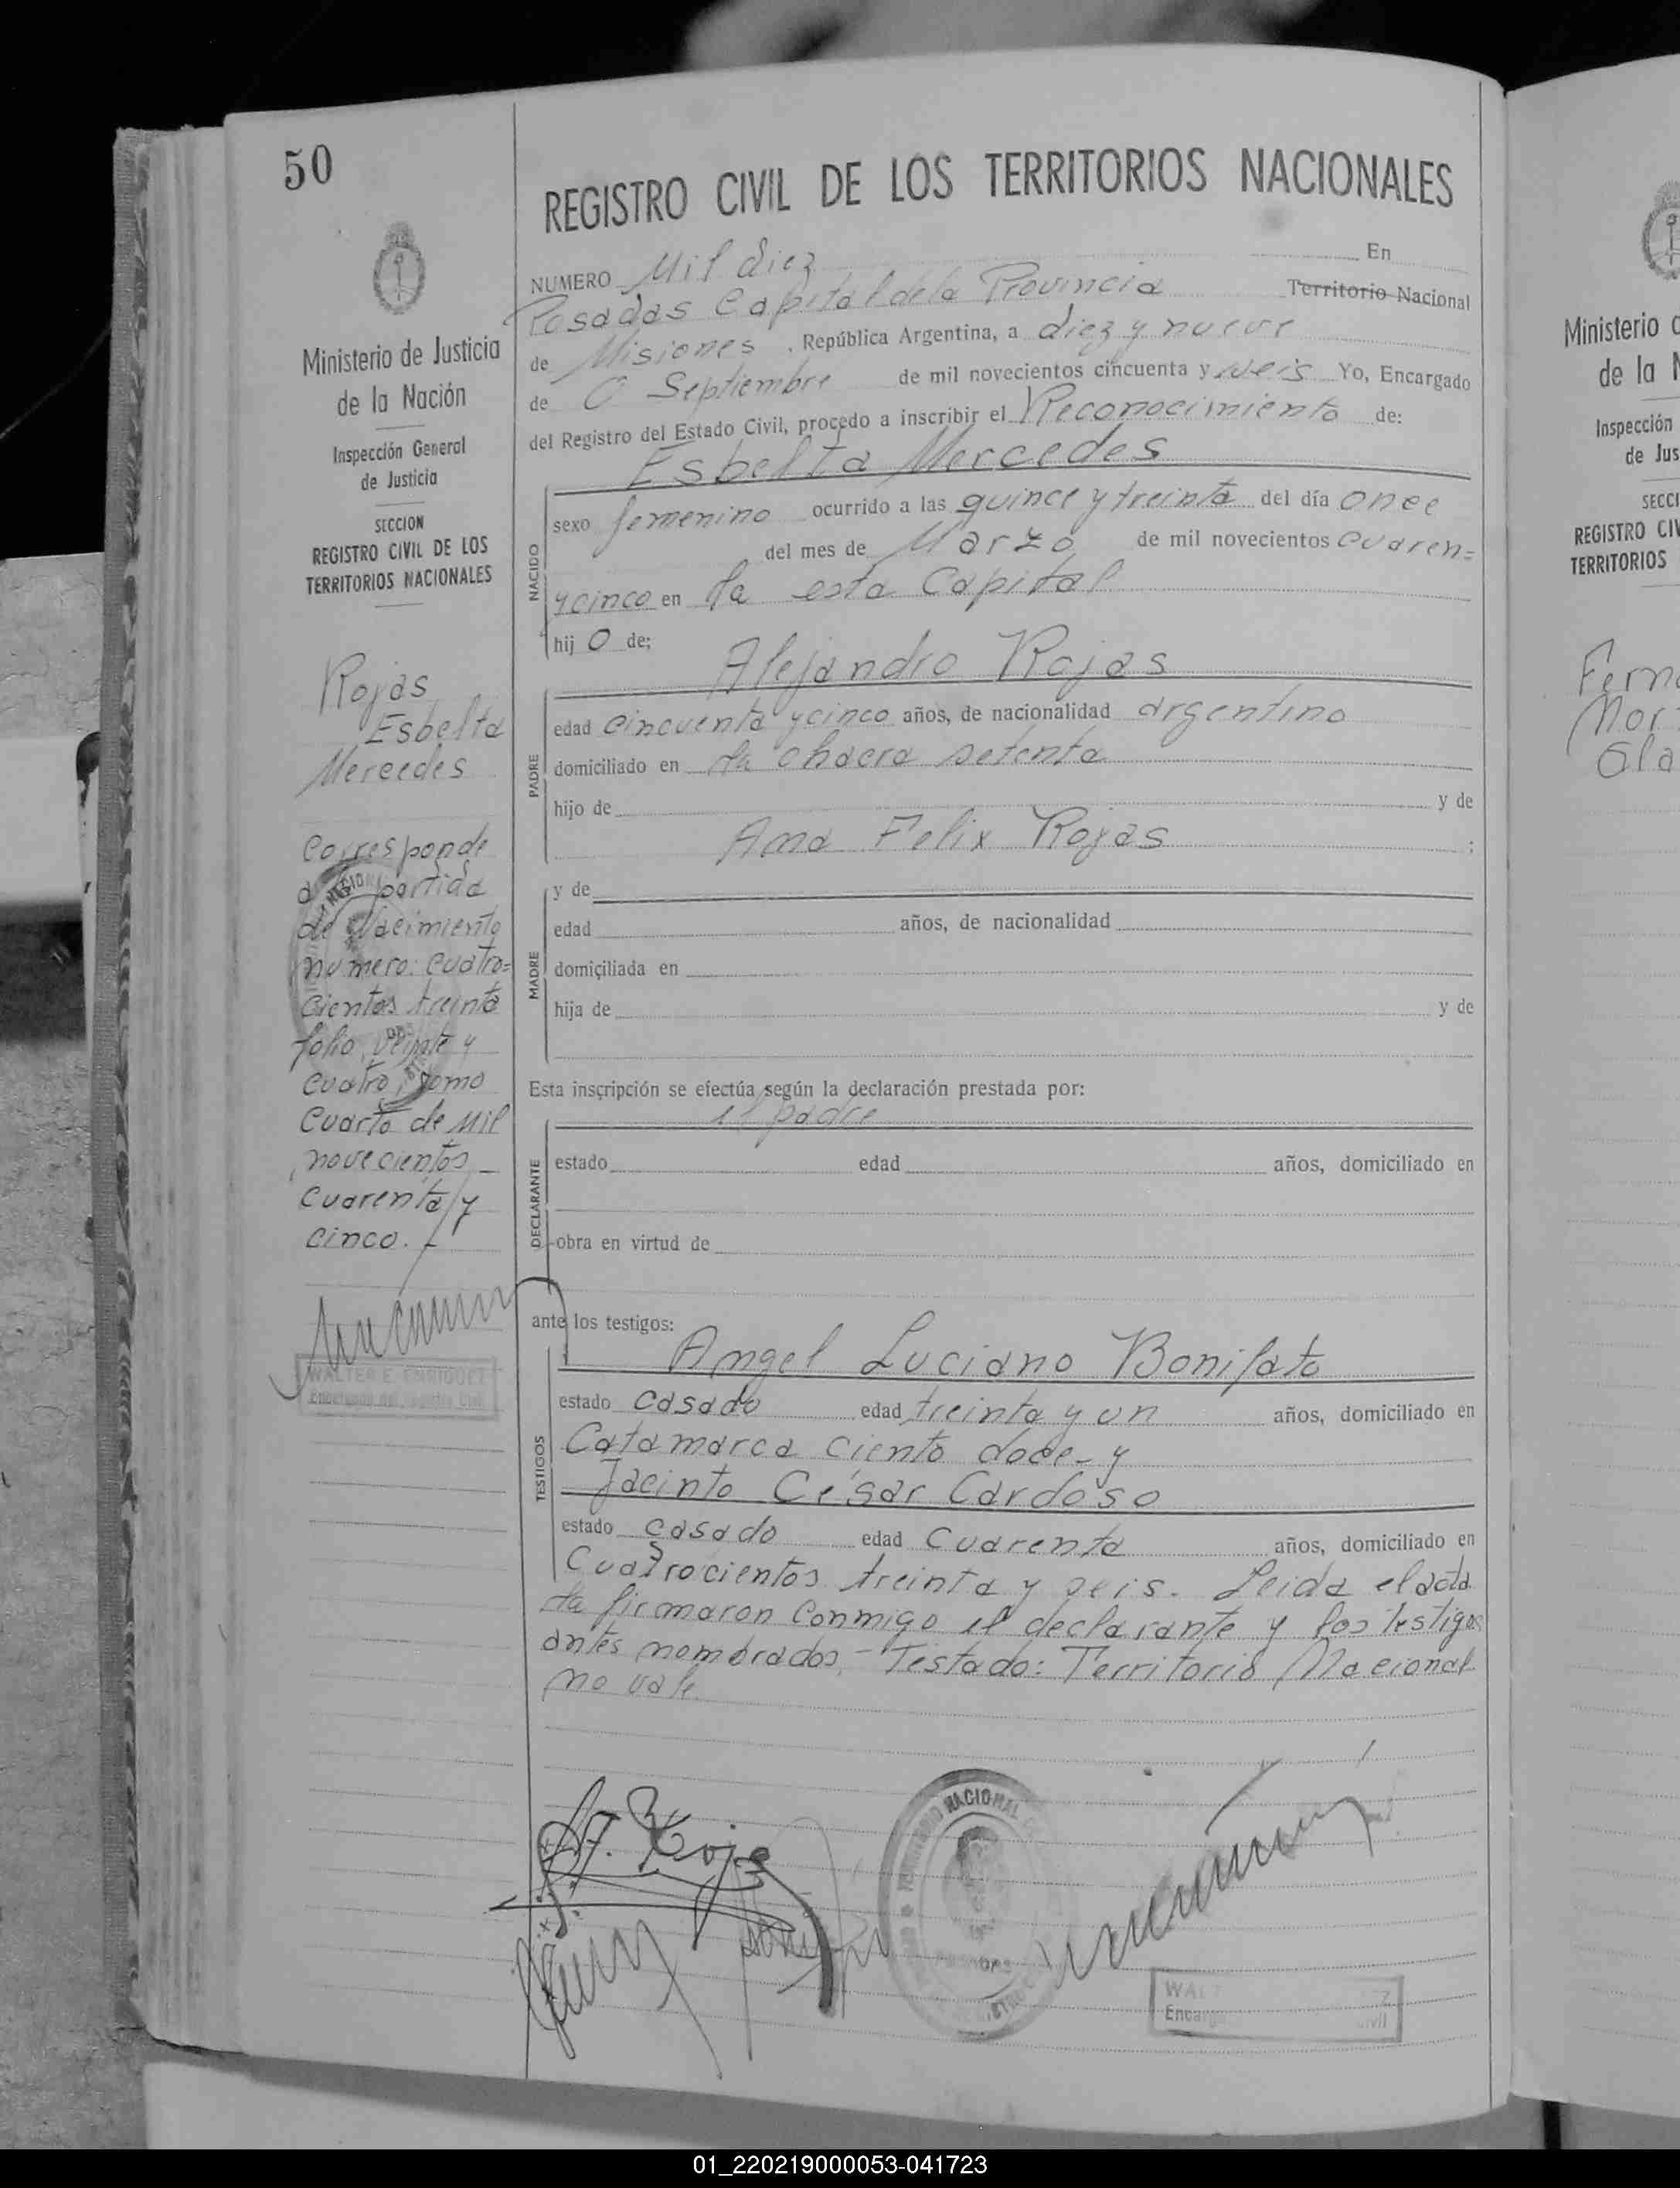 50
REGISTRO CIVIL DE LOS TERRITORIOS NACIONALES
Ministerio de Justicia
de la Nación
Inspección General
de Justicia
SECCION
REGISTRO CIVIL DE LOS
TERRITORIOS NACIONALES
Rojas
Esbelta
Mercedes
Corresponde
a la partida
de Nacimiento
numero: cuatro=
cientos treinta
folio, veinte y
cuatro, tomo
Cuarto de Mil
novecientos
cuarenta y
cinco.-
WALTER E. ENRIQUEZ
Encargado del Registro Civil
NUMERO Mil diez En
Posadas Capital de la Provincia Territorio Nacional
de Misiones, República Argentina, a diez y nueve
de Septiembre de mil novecientos cincuenta y seis Yo, Encargado
del Registro del Estado Civil, procedo a inscribir el Reconocimiento de:
Esbelta Mercedes
NACIDO
sexo femenino ocurrido a las quince y treinta del día once
del mes de Marzo de mil novecientos cuaren=
y cinco en ta esta Capital
hij o de;
Alejandro Rojas
PADRE
edad cincuenta y cinco años, de nacionalidad argentino
domiciliado en la chacra setenta
hijo de y de
Ana Felix Rojas ;
MADRE
y de
edad años, de nacionalidad
domiciliada en
hija de y de
Esta inscripción se efectúa según la declaración prestada por:
el padre
DECLARANTE
estado edad años, domiciliado en
obra en virtud de
ante los testigos:
Angel Luciano Bonifato
TESTIGOS
estado casado edad treinta y un años, domiciliado en
Catamarca ciento doce y
Jacinto César Cardoso
estado casado edad cuarenta años, domiciliado en
Cuatrocientos treinta y seis. Leida el acta
la firmaron conmigo el declarante y los testigos
antes nombrados.- Testado: Territorio Nacional
no vale.
A. Rojas
NACIONAL
WALT Z
Encarga ivil
Ministerio d
de la N
Inspección
de Jus
SECCI
REGISTRO CIV
TERRITORIOS
Fern
Mor
Gla
01_220219000053-041723